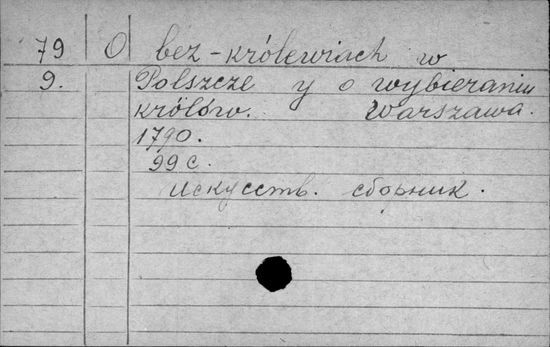 79 O bez-królewiach w
9. Polszcze y o wybieraniu
królów. Warszawa.
1790.
99 с.
искусств. сборник.